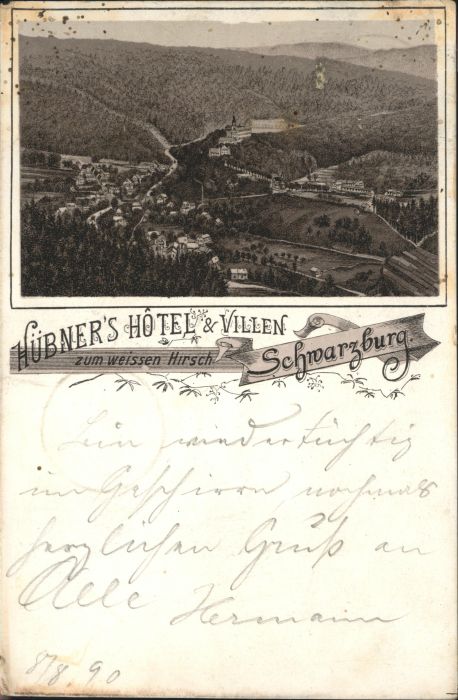 HÜBNER'S HÔTEL & VILLEN
zum weissen Hirsch
Schwarzburg.
Bin wieder tüchtig
im Geschirr nochmals
herzlichen Gruß an
Alle Hermann
8/8. 90